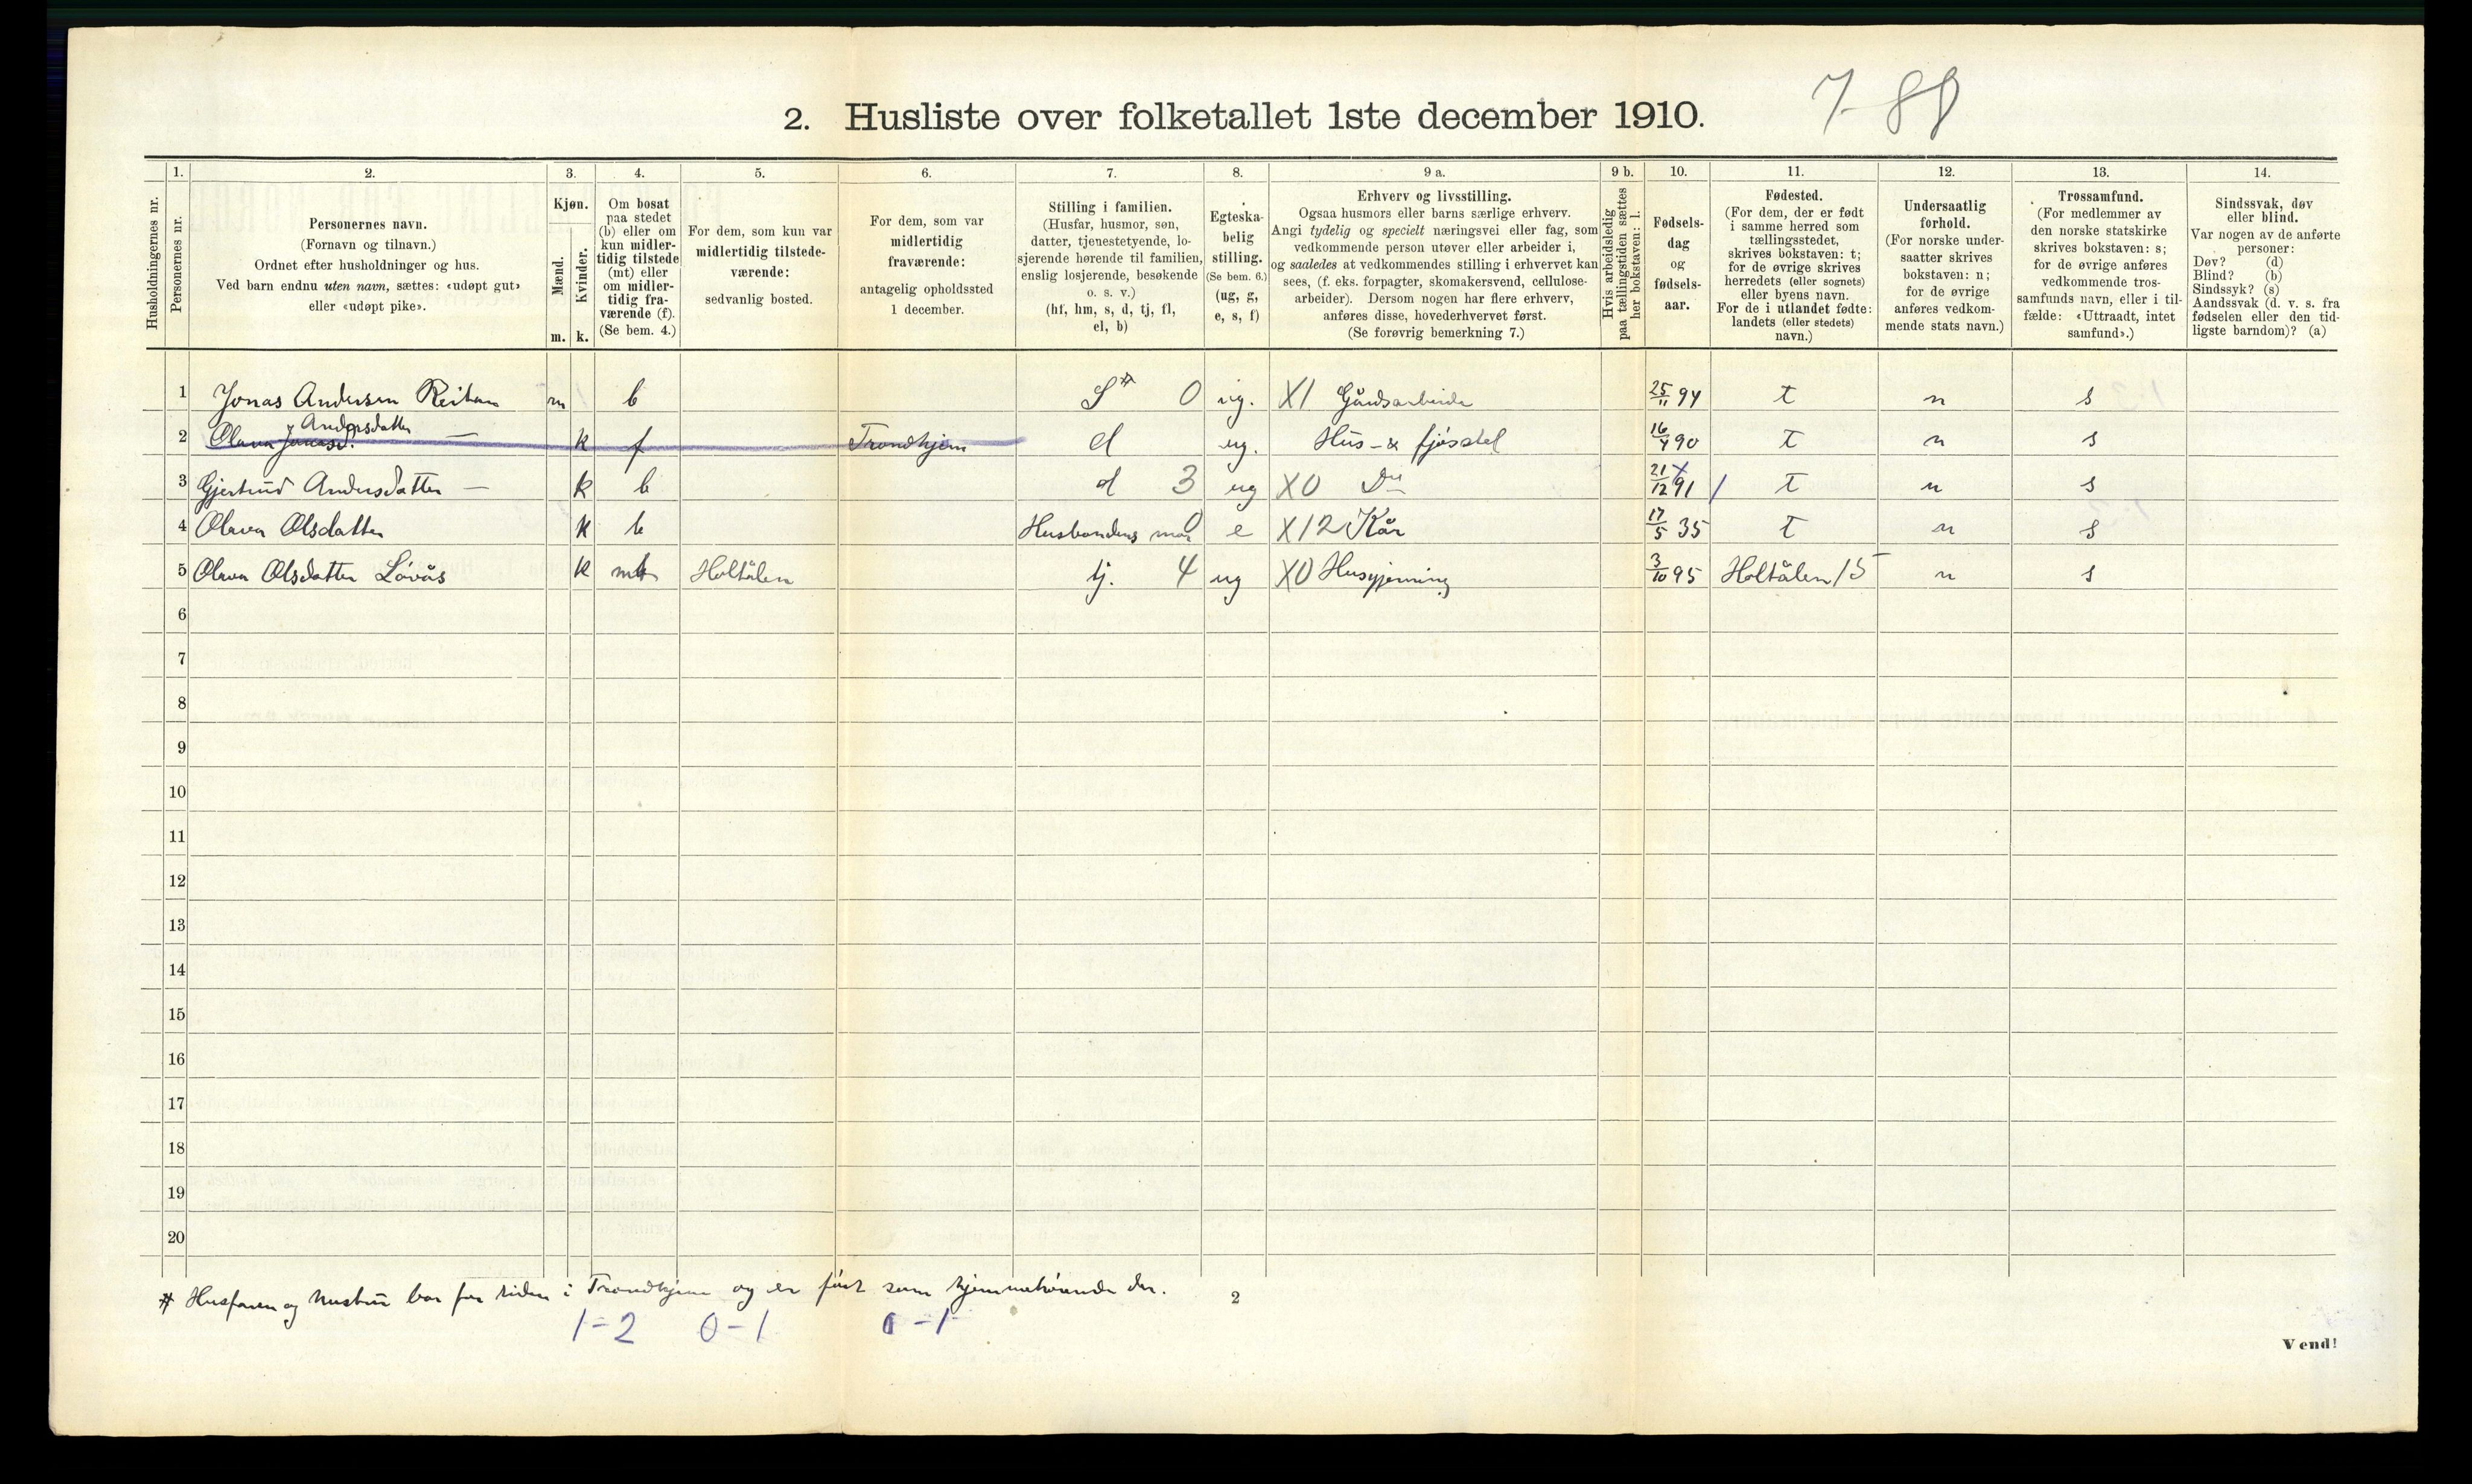 7-88
2. Husliste over folketallet 1ste december 1910.
Husholdningernes nr.
1. Personernes nr.
2. Personernes navn. (Fornavn og tilnavn.) Ordnet efter husholdninger og hus. Ved barn endnu uten navn, sættes: «udøpt gut» eller «udøpt pike».
3. Kjøn. Mænd. m. Kvinder. k.
4. Om bosat paa stedet (b) eller om kun midlertidig tilstede (mt) eller om midlertidig fraværende (f). (Se bem. 4.)
5. For dem, som kun var midlertidig tilstedeværende: sedvanlig bosted.
6. For dem, som var midlertidig fraværende: antagelig opholdssted 1 december.
7. Stilling i familien. (Husfar, husmor, søn, datter, tjenestetyende, losjerende hørende til familien, enslig losjerende, besøkende o. s. v.) (hf, hm, s, d, tj, fl, el, b)
8. Egteskabelig stilling. (Se bem. 6.) (ug, g, e, s, f)
9 a. Erhverv og livsstilling. Ogsaa husmors eller barns særlige erhverv. Angi tydelig og specielt næringsvei eller fag, som vedkommende person utøver eller arbeider i, og saaledes at vedkommendes stilling i erhvervet kan sees, (f. eks. forpagter, skomakersvend, cellulosearbeider). Dersom nogen har flere erhverv, anføres disse, hovederhvervet først. (Se forøvrig bemerkning 7.)
9 b. Hvis arbeidsledig paa tællingstiden sættes her bokstaven: l.
10. Fødselsdag og fødselsaar.
11. Fødested. (For dem, der er født i samme herred som tællingsstedet, skrives bokstaven: t; for de øvrige skrives herredets (eller sognets) eller byens navn. For de i utlandet fødte: landets (eller stedets) navn.)
12. Undersaatlig forhold. (For norske undersaatter skrives bokstaven: n; for de øvrige anføres vedkommende stats navn.)
13. Trossamfund. (For medlemmer av den norske statskirke skrives bokstaven: s; for de øvrige anføres vedkommende trossamfunds navn, eller i tilfælde: «Uttraadt, intet samfund».)
14. Sindssvak, døv eller blind. Var nogen av de anførte personer: Døv? (d) Blind? (b) Sindssyk? (s) Aandssvak (d. v. s. fra fødselen eller den tidligste barndom)? (a)
1 Jonas Andersen Reitan m b S # 0 ug. X1 Gårdsarbeide 25/11 94 t n s
2 Olava Jonasd. Andersdatter — k f Trondhjem d ug. Hus- & fjøsstel 16/4 90 t n s
3 Gjertrud Andersdatter — k b d 3 ug X0 Do 21/12 91 / t n s
4 Olava Olsdatter k b Husbondens mor 0 e X12 Kår 17/5 35 t n s
5 Olava Olsdatter Løvås k mt Holtålen tj. 4 ug X0 Husgjerning 3/10 95 Holtålen 15 n s
6
7
8
9
10
11
12
13
14
15
16
17
18
19
20
# Husfaren og hustru bor for tiden i Trondhjem og er ført som hjemmehørende der.
2
1-2 0-1 0-1
Vend!